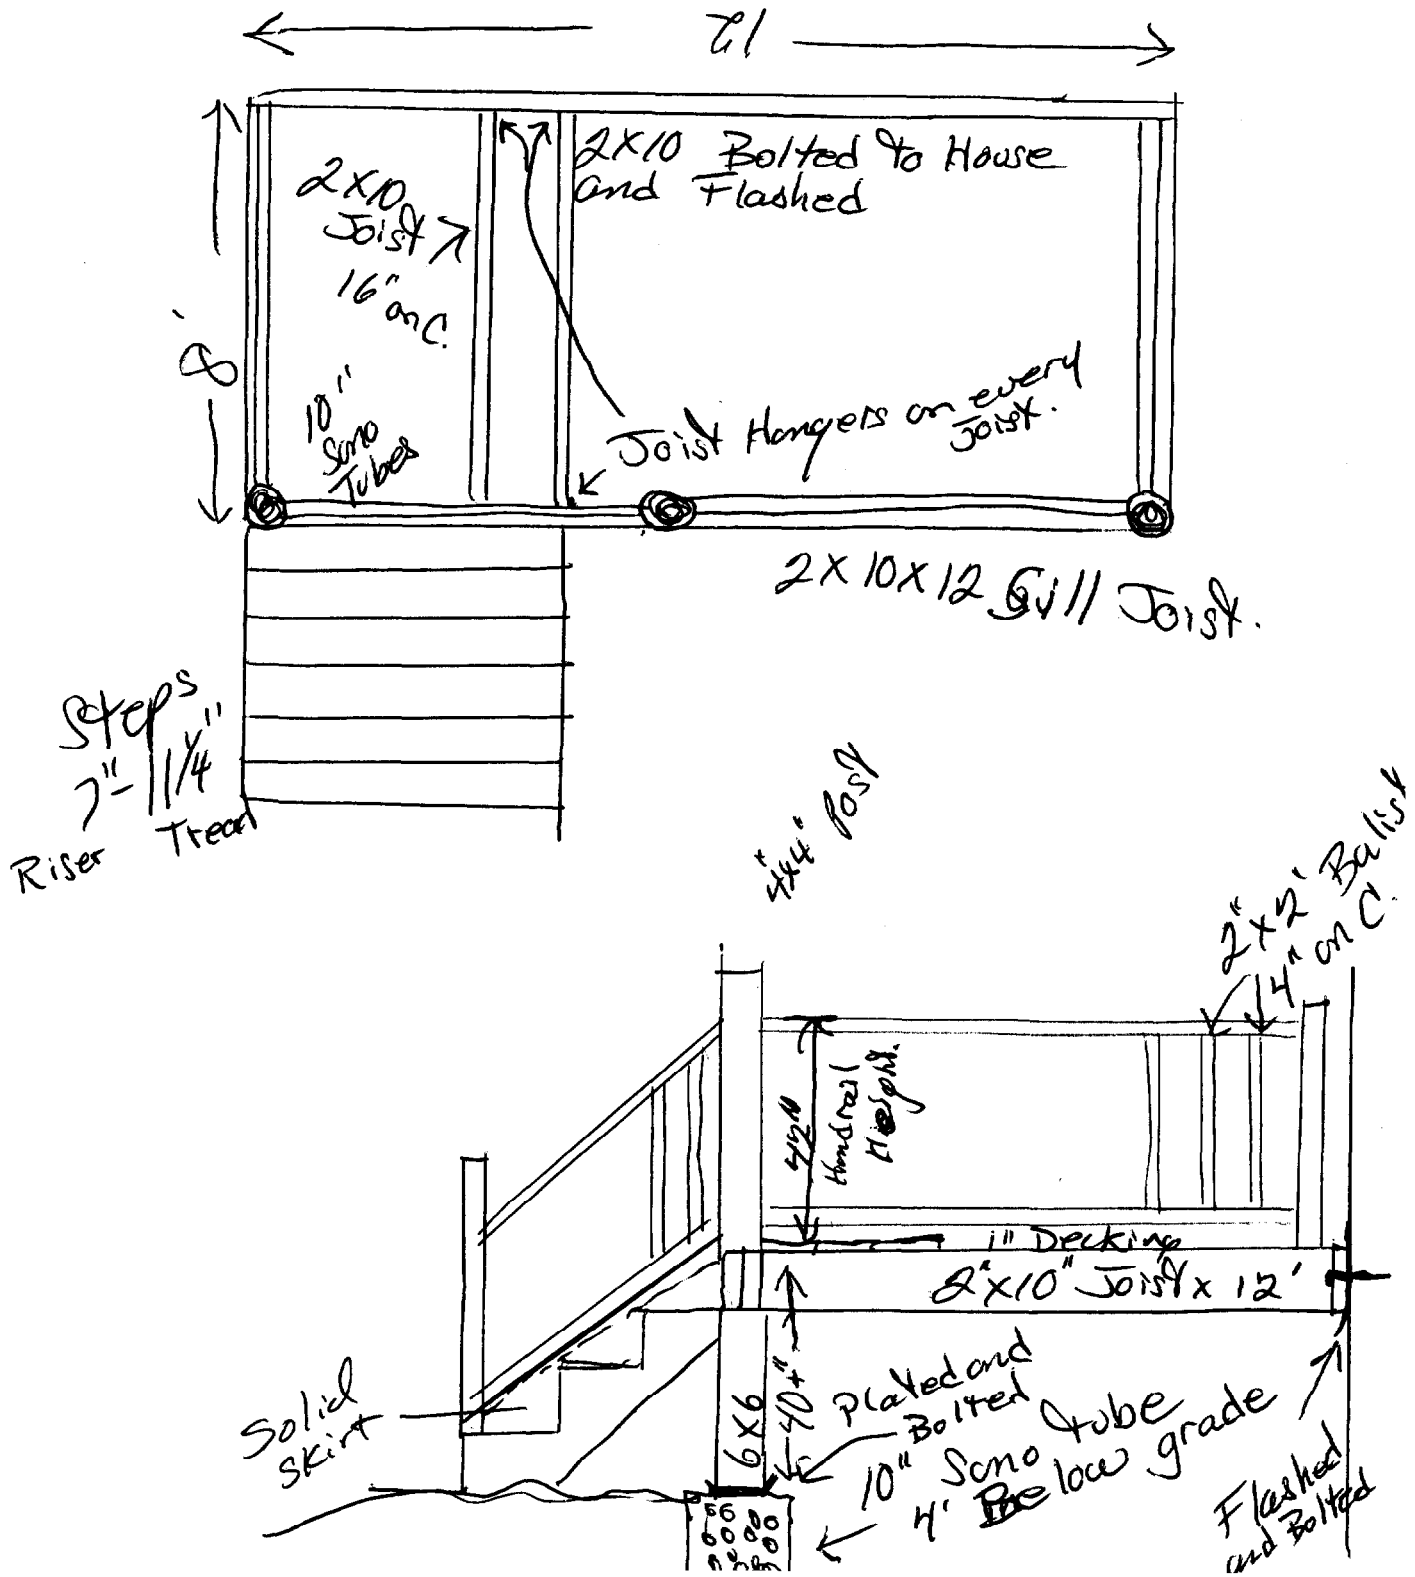 12
2x10 Bolted to House
and Flashed
2x10
Joist
16" on C.
8'
10"
Sono
Tubes
Joist Hangers on every
Joist.
2x10x12 Sill Joist.
Steps
7"- 11 1/4"
Riser Tread
4"x4" Post
2"x2" Balist
4" on C.
42"
Handrail
Height.
1" Decking
2"x10" Joist x 12'
Solid
Skirt
6x6
40+"
Plated and
Bolted
10" Sono tube
4' Below grade
Flashed
and Bolted